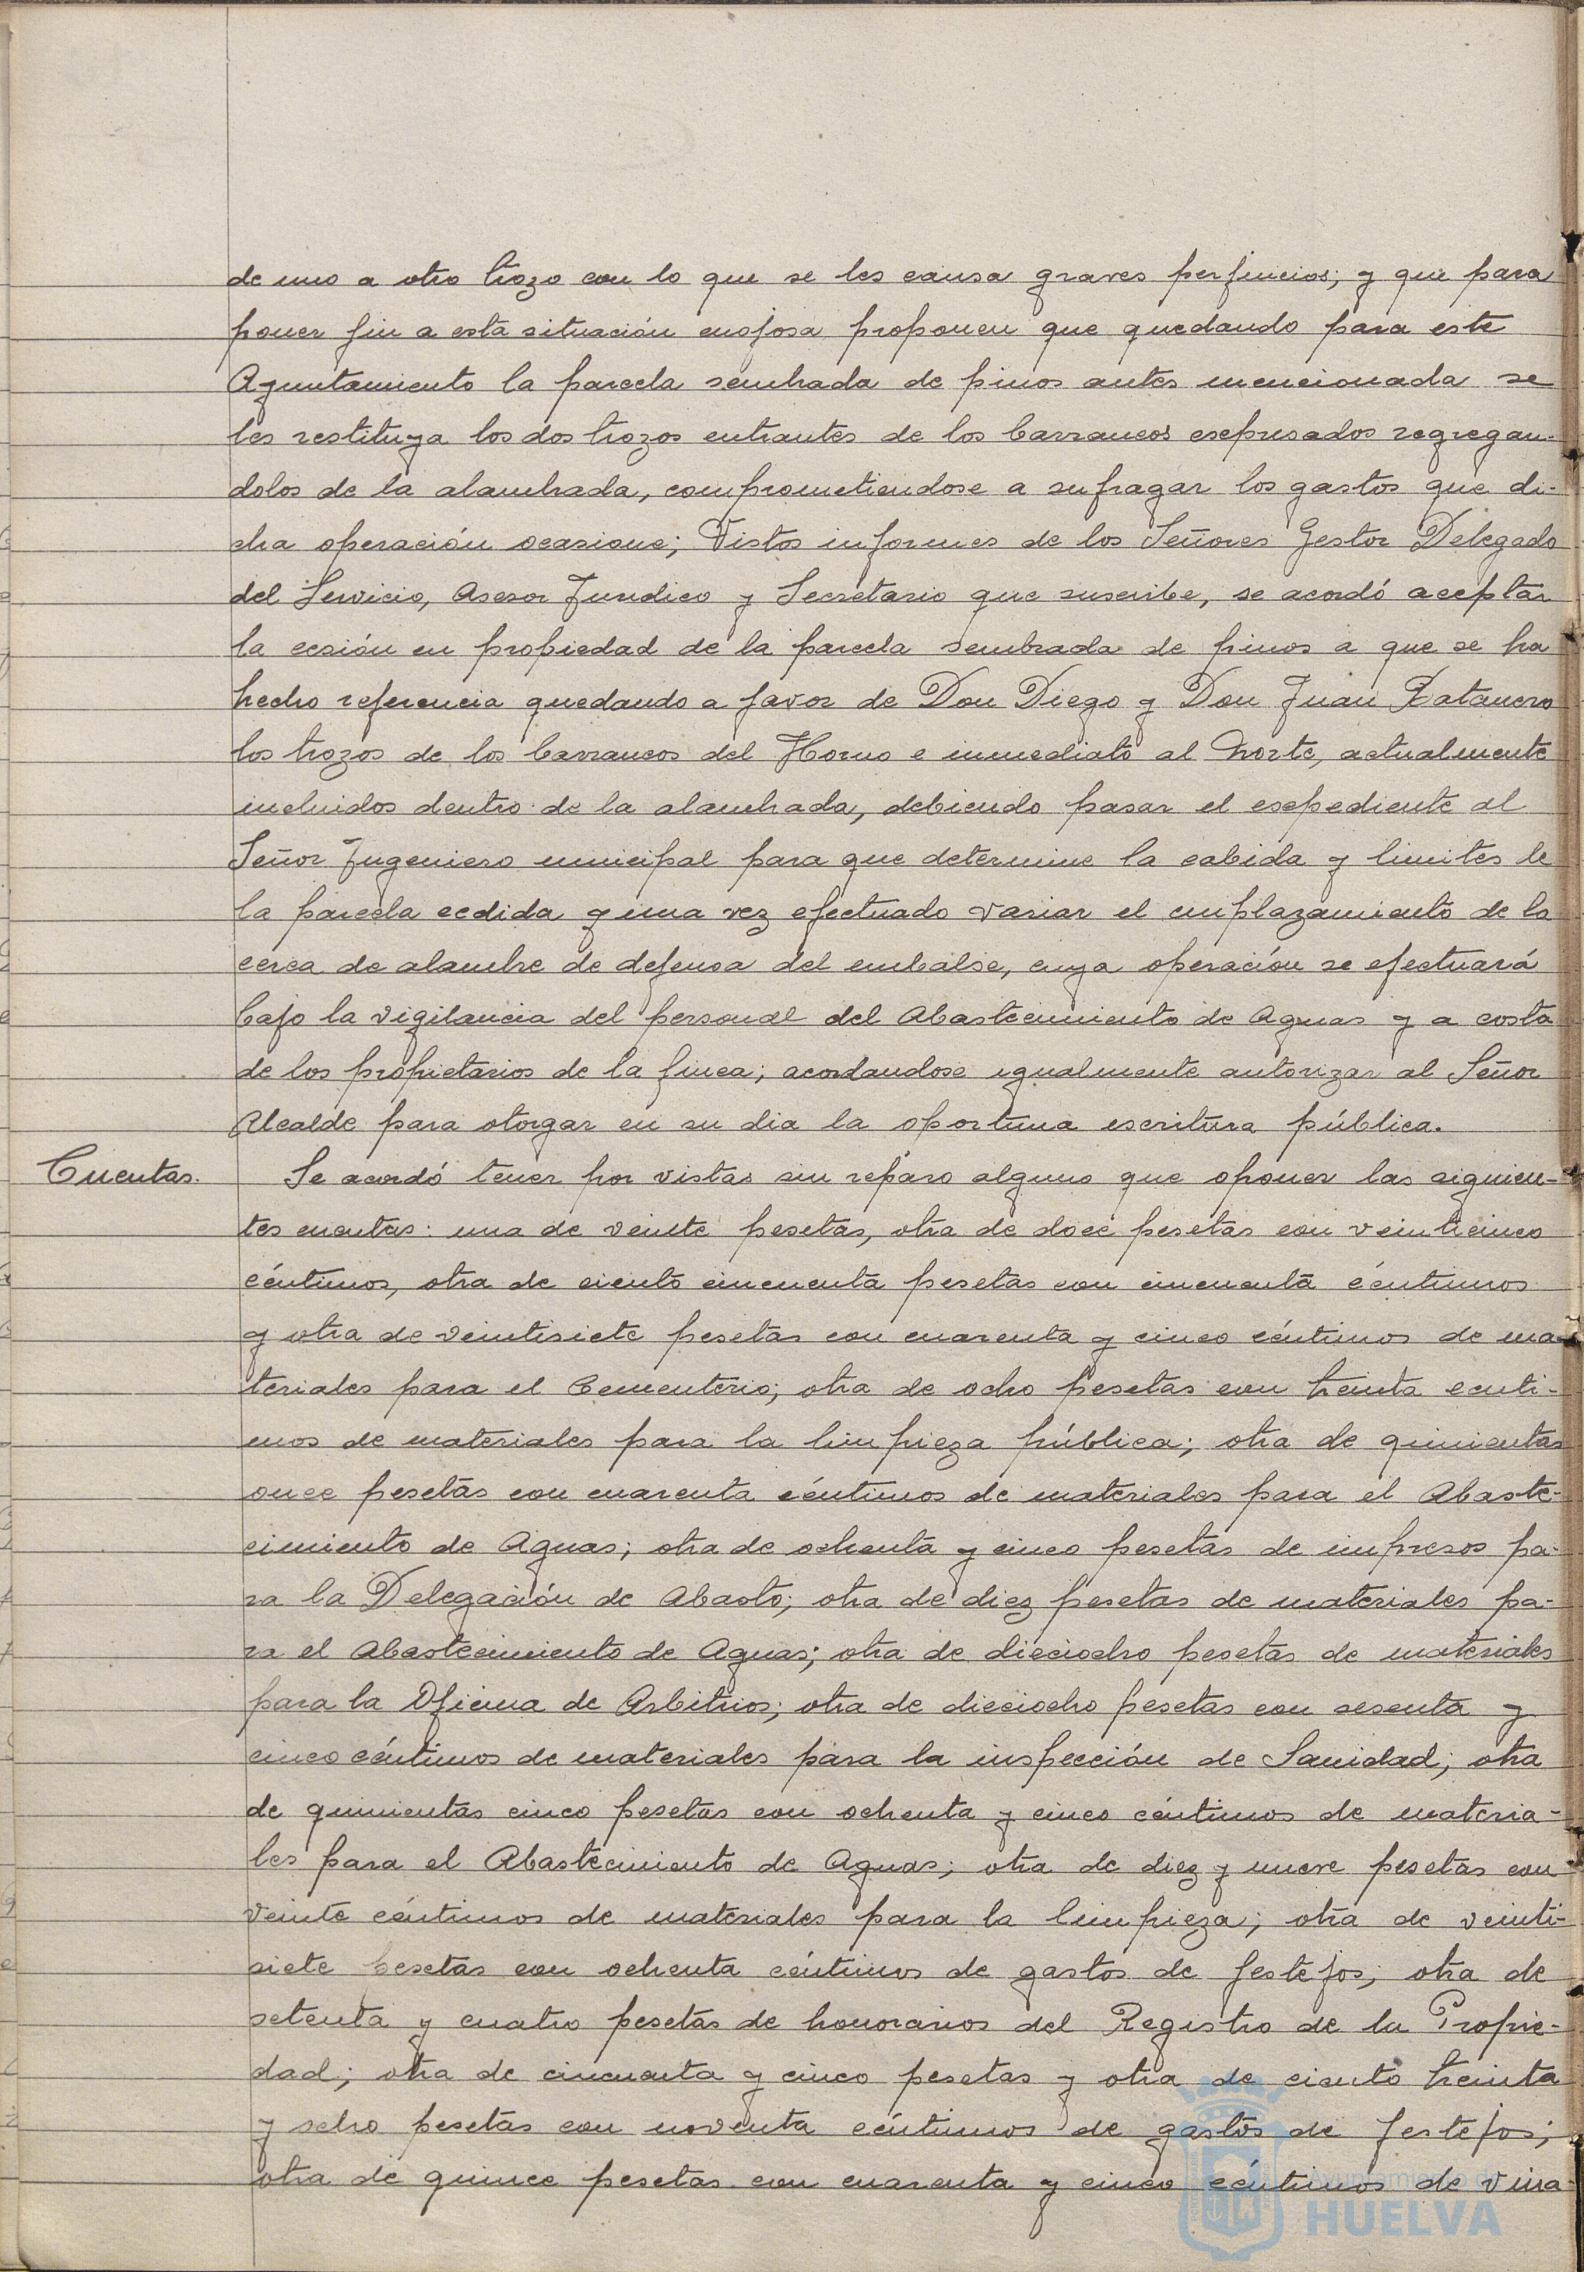 de uno a otro trozo con lo que se les causa graves perjuicios; y que para
poner fin a esta situación enojosa proponen que quedando para este
Ayuntamiento la parcela sembrada de pinos antes mencionada se
les restituya los dos trozos entrantes de los barrancos esepresados regregan-
dolos de la alambrada, comprometiendose a sufragar los gastos que di-
cha operación ocasione; Vistos informes de los Señores Gestor Delegado
del Servicio, Asesor Juridico y Secretario que suscribe, se acordó aceptar
la cesión en propiedad de la parcela sembrada de pinos a que se ha
hecho referencia quedando a favor de Don Diego y Don Juan Ratanero
los trozos de los barrancos del Horno e inmediato al Norte, actualmente
incluidos dentro de la alambrada, debiendo pasar el esepediente al
Señor Ingeniero municipal para que determine la cabida y limites de
la parcela cedida y una vez efectuado variar el emplazamiento de la
cerca de alambre de defensa del embalse, cuya operación se efectuará
bajo la vigilancia del personal del Abastecimiento de Aguas y a costa
de los propietarios de la finca; acordandose igualmente autorizar al Señor
Alcalde para otorgar en su dia la oportuna escritura pública.
Cuentas. Se acordó tener por vistas sin reparo alguno que oponer las siguien-
tes cuentas: una de veinte pesetas, otra de doce pesetas con veinticinco
céntimos, otra de ciento cincuenta pesetas con cincuenta céntimos
y otra de veintisiete pesetas con cuarenta y cinco céntimos de ma-
teriales para el Cementerio; otra de ocho pesetas con treinta centi-
mos de materiales para la limpieza pública; otra de quinientas
once pesetas con cuarenta céntimos de materiales para el Abaste-
cimiento de Aguas; otra de ochenta y cinco pesetas de impresos pa-
ra la Delegación de Abasto; otra de diez pesetas de materiales pa-
ra el Abastecimiento de Aguas; otra de dieciocho pesetas de materiales
para la Oficina de Arbitrios; otra de dieciocho pesetas con sesenta y
cinco céntimos de materiales para la inspección de Sanidad; otra
de quinientas cinco pesetas con ochenta y cinco céntimos de materia-
les para el Abastecimiento de Aguas; otra de diez y nueve pesetas con
veinte céntimos de materiales para la limpieza; otra de veinti-
siete pesetas con ochenta céntimos de gastos de festejos; otra de
setenta y cuatro pesetas de honorarios del Registro de la Propie-
dad; otra de cincuenta y cinco pesetas y otra de ciento treinta
y ocho pesetas con noventa céntimos de gastos de festejos;
otra de quince pesetas con cuarenta y cinco céntimos de vina-
Ayuntamiento de
HUELVA